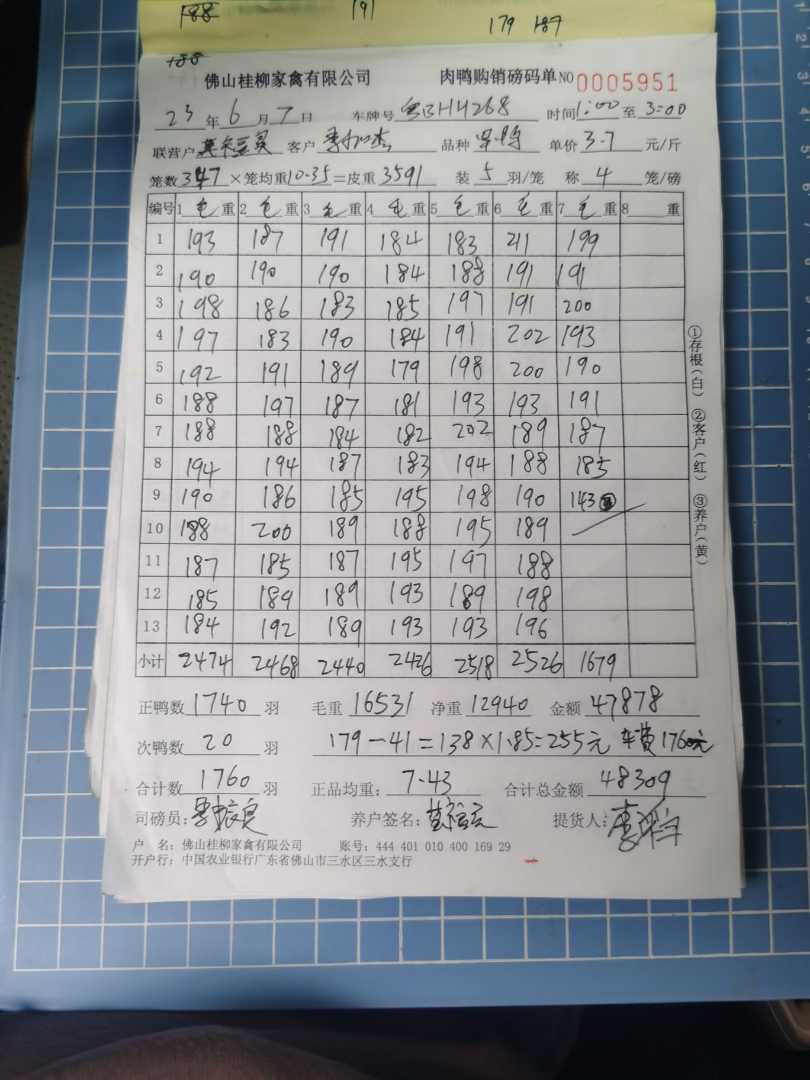 188 191
179 187
188
佛山桂柳家禽有限公司 肉鸭购销磅码单 NO 0005951
23 年 6 月 7 日 车牌号 粤BH4268 时间 1:00 至 3:00
联营户 客户 品种 单价 3.7 元/斤
笼数 347 ×笼均重 10.35 =皮重 3591 装 5 羽/笼 称 4 笼/磅
编号 1 毛 重 2 毛 重 3 毛 重 4 毛 重 5 毛 重 6 毛 重 7 毛 重 8 重
1 193 187 191 184 183 211 199
2 190 190 190 184 188 191 191
3 198 186 183 185 197 191 200
4 197 183 190 184 191 202 193
5 192 191 189 179 198 200 190
6 188 197 187 181 193 193 191
7 188 188 184 182 202 189 187
8 194 194 187 183 194 188 185
9 190 186 185 195 198 190 143
10 188 200 189 188 195 189
11 187 185 187 195 197 188
12 185 189 189 193 189 198
13 184 192 189 193 193 196
小计 2474 2468 2440 2426 2518 2526 1679
正鸭数 1740 羽 毛重 16531 净重 12940 金额 47878
次鸭数 20 羽 179-41=138×1.85=255元 车费176元
合计数 1760 羽 正品均重: 7.43 合计总金额 48309
司磅员: 养户签名: 提货人:
户 名: 佛山桂柳家禽有限公司 账号: 444 401 010 400 169 29
开户行: 中国农业银行广东省佛山市三水区三水支行
①存根(白) ②客户(红) ③养户(黄)